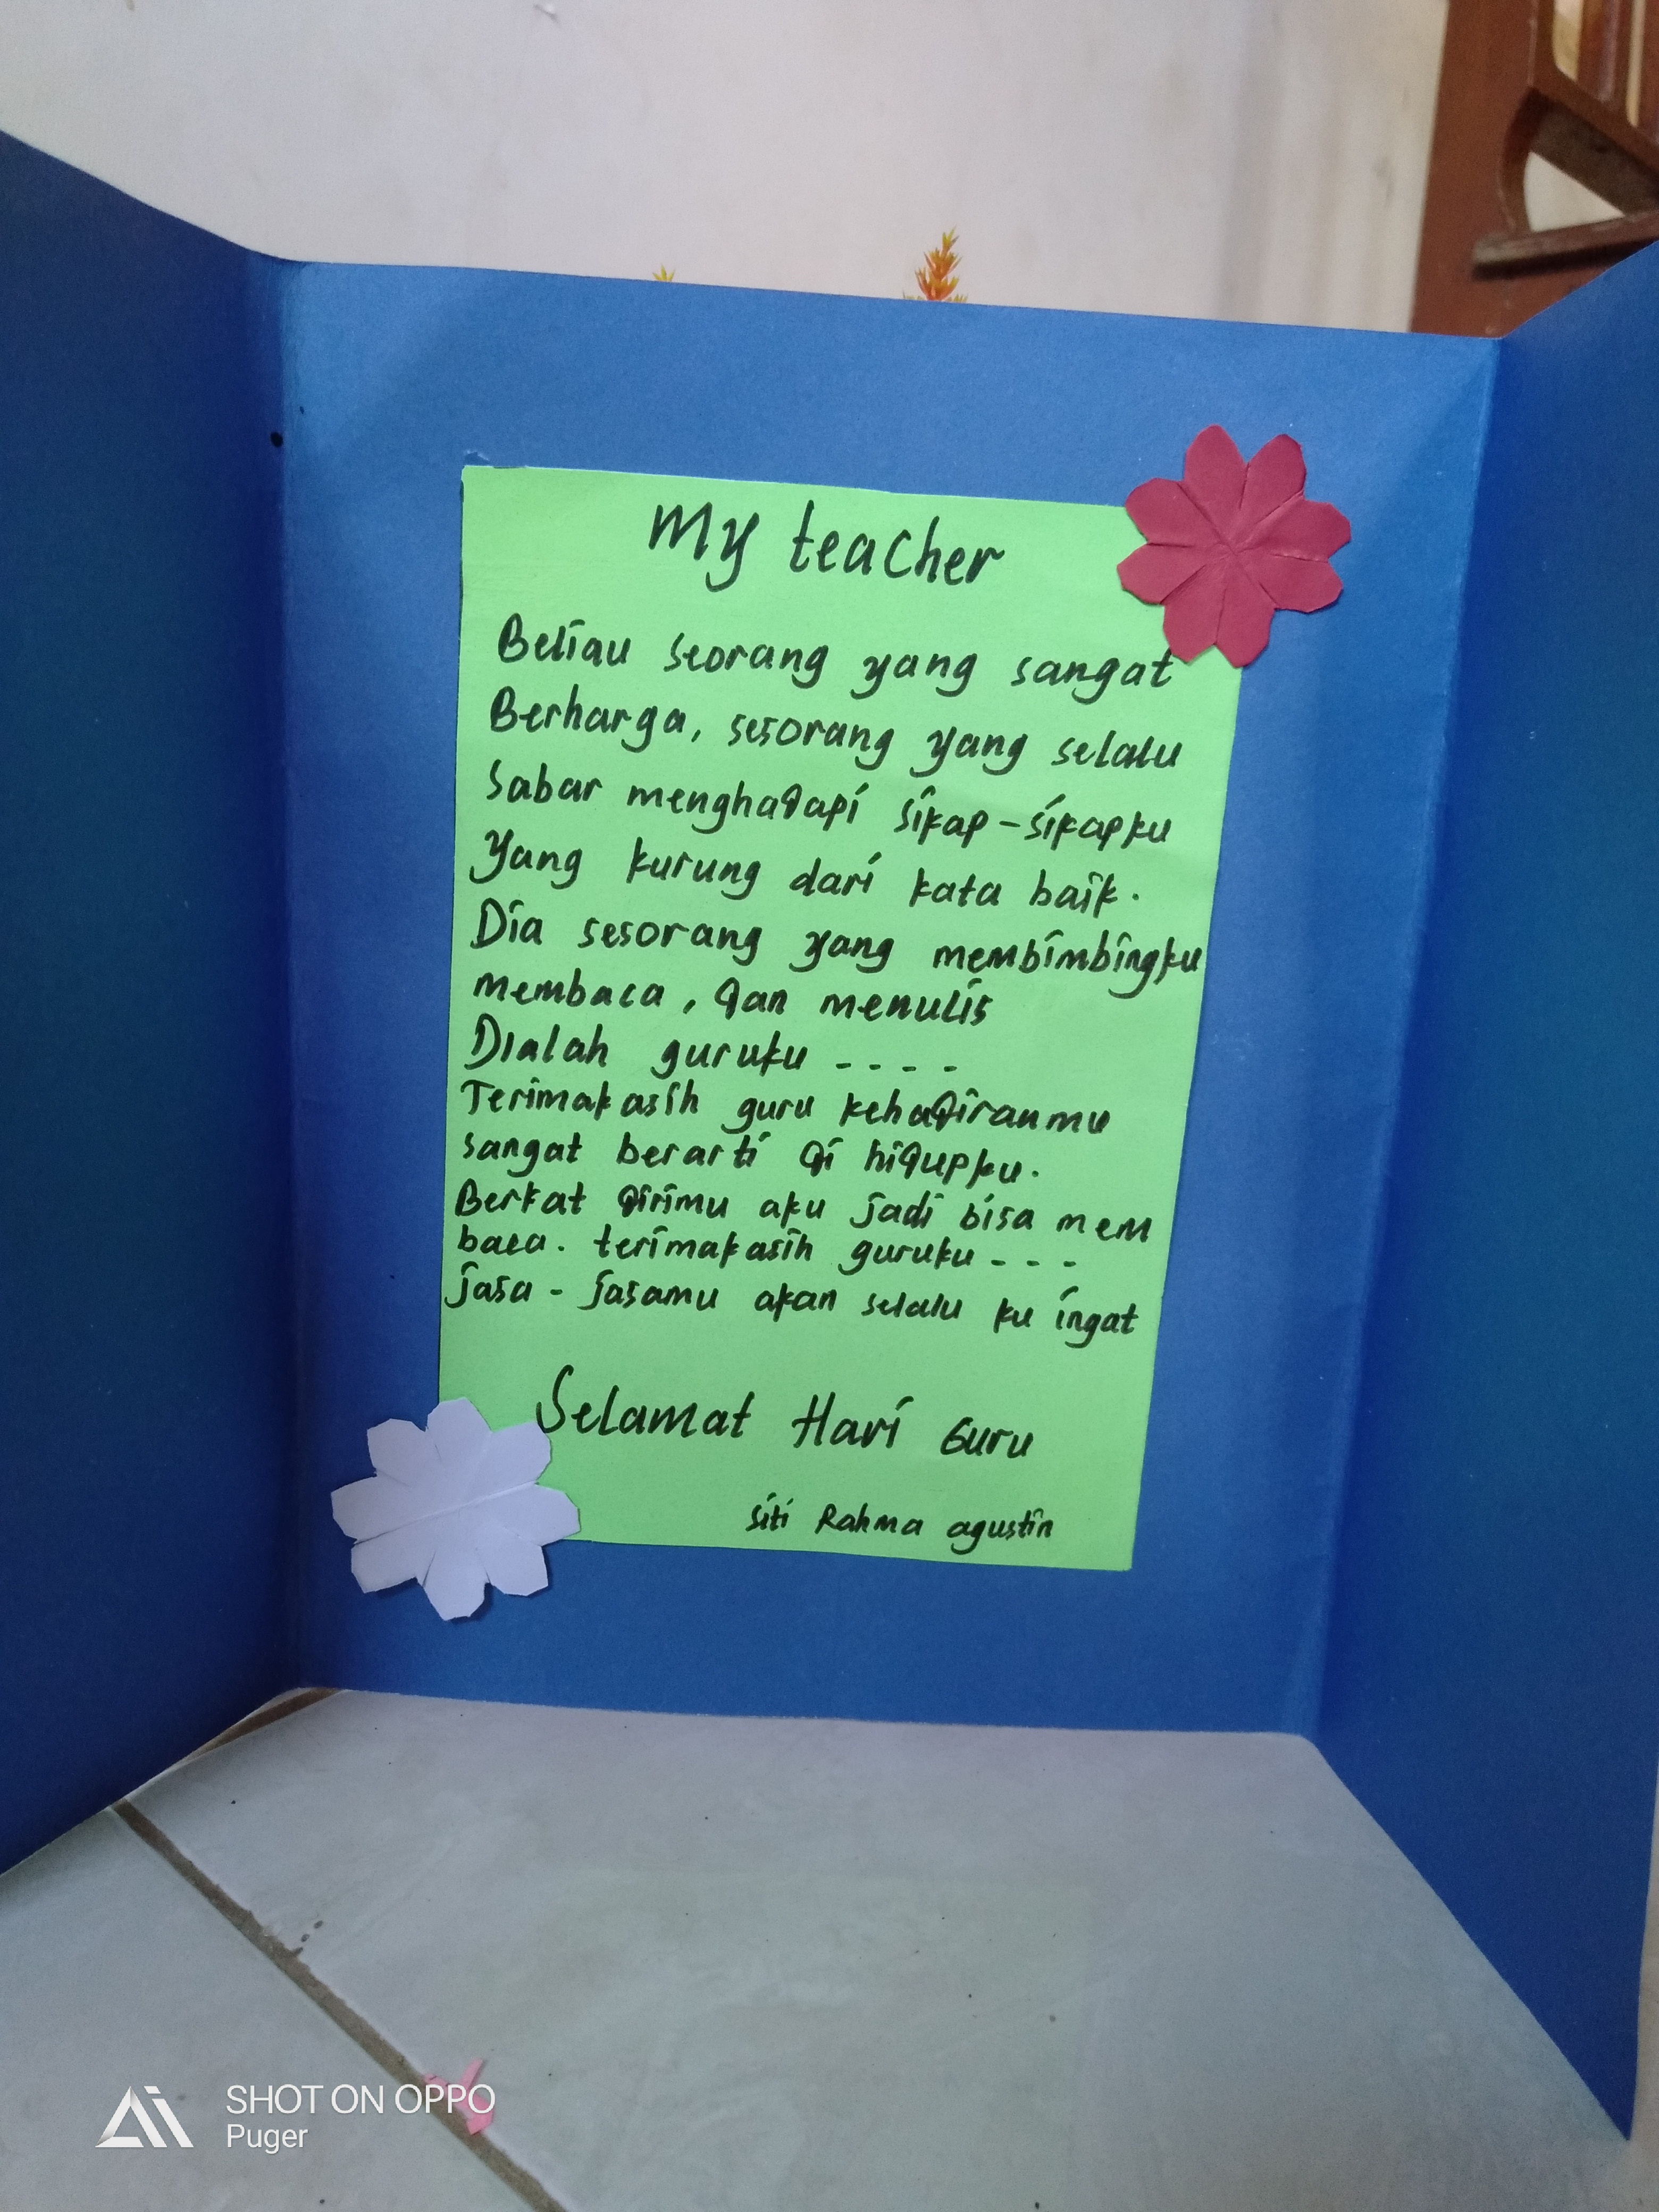 My teacher
Beliau seorang yang sangat
Berharga, sesorang yang selalu
Sabar menghadapi sikap-sikapku
Yang kurung dari kata baik.
Dia sesorang yang membimbingku
membaca, dan menulis
Dialah guruku ----
Terimakasih guru kehadiranmu
sangat berarti di hidupku.
Berkat dirimu aku jadi bisa mem
baca. terimakasih guruku ---
jasa - jasamu akan selalu ku ingat
Selamat Hari Guru
Siti Rahma agustin
SHOT ON OPPO
Puger